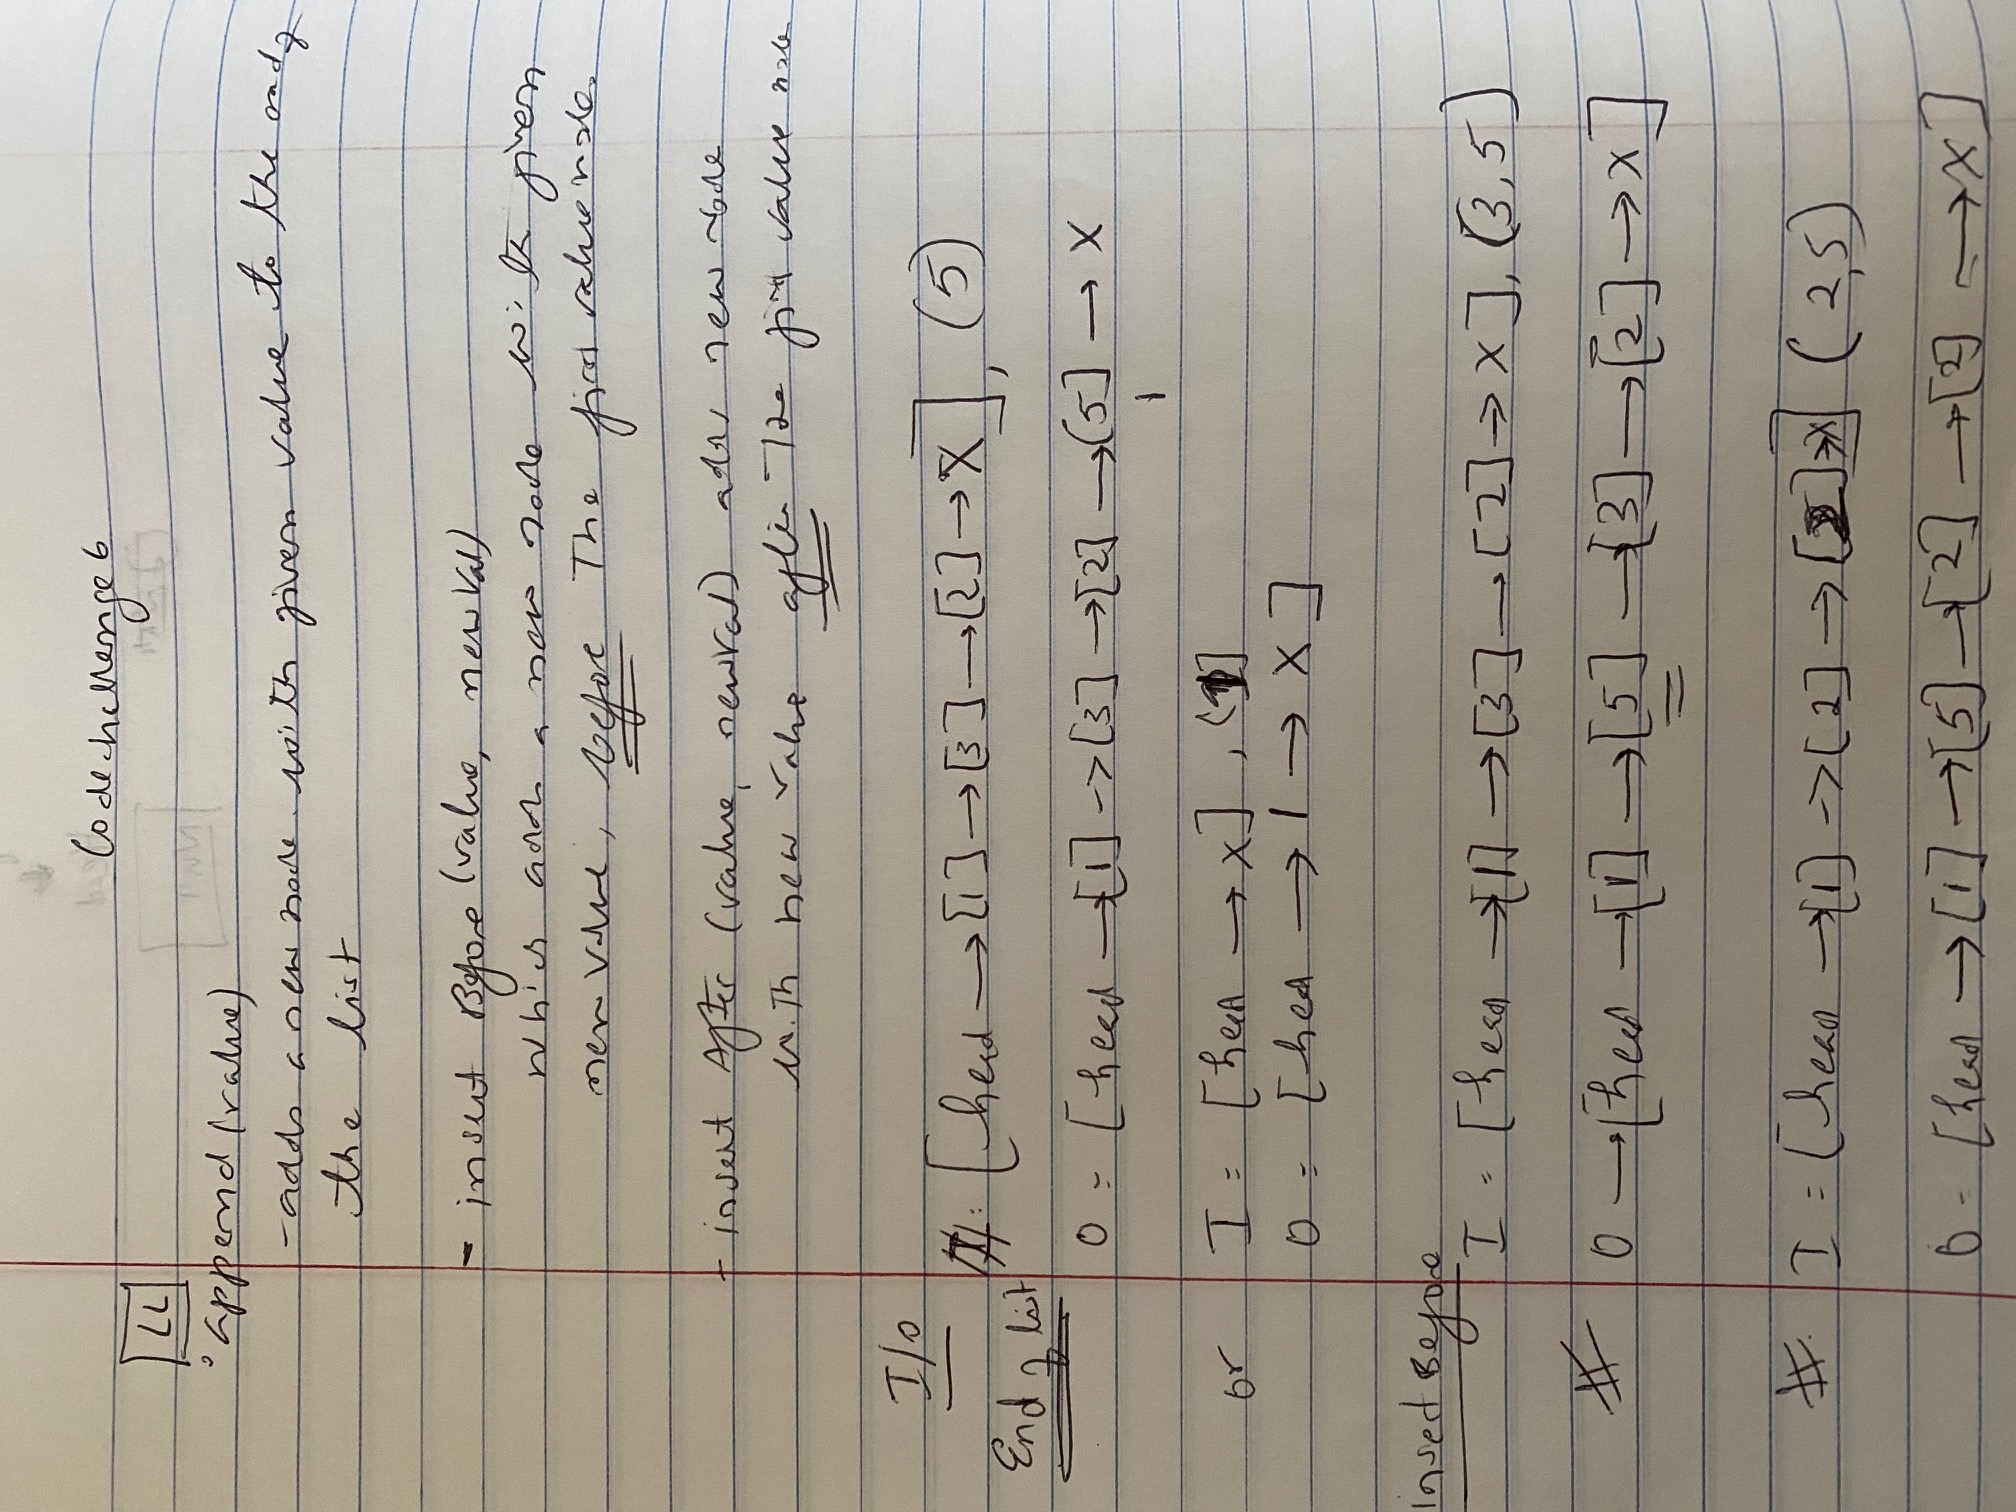 Code challenge 6
LL
° append (value)
- adds a new node with given value to the end of
the list
- insert Before (value, newVal)
which adds a new node with given
new value, before The first value node.
- insert After (value, newval) adds new node
with new value after The first value node
I/O
I: [head → [1] → [3] → [2] → X], (5)
End of list
O = [head → [1] -> [3] → [2] → [5] → X
1
or I = [head → x], (1]
O = [head → 1 → X]
insert Before
I = [head → [1] → [3] → [2] → X], (3,5)
# O → [head → [1] → [5] → [3] → [2] → X]
# I = [head → [1] -> [2] → [2] → X] (2,5)
O = [head → [1] → [5] → [2] → [2] → X]